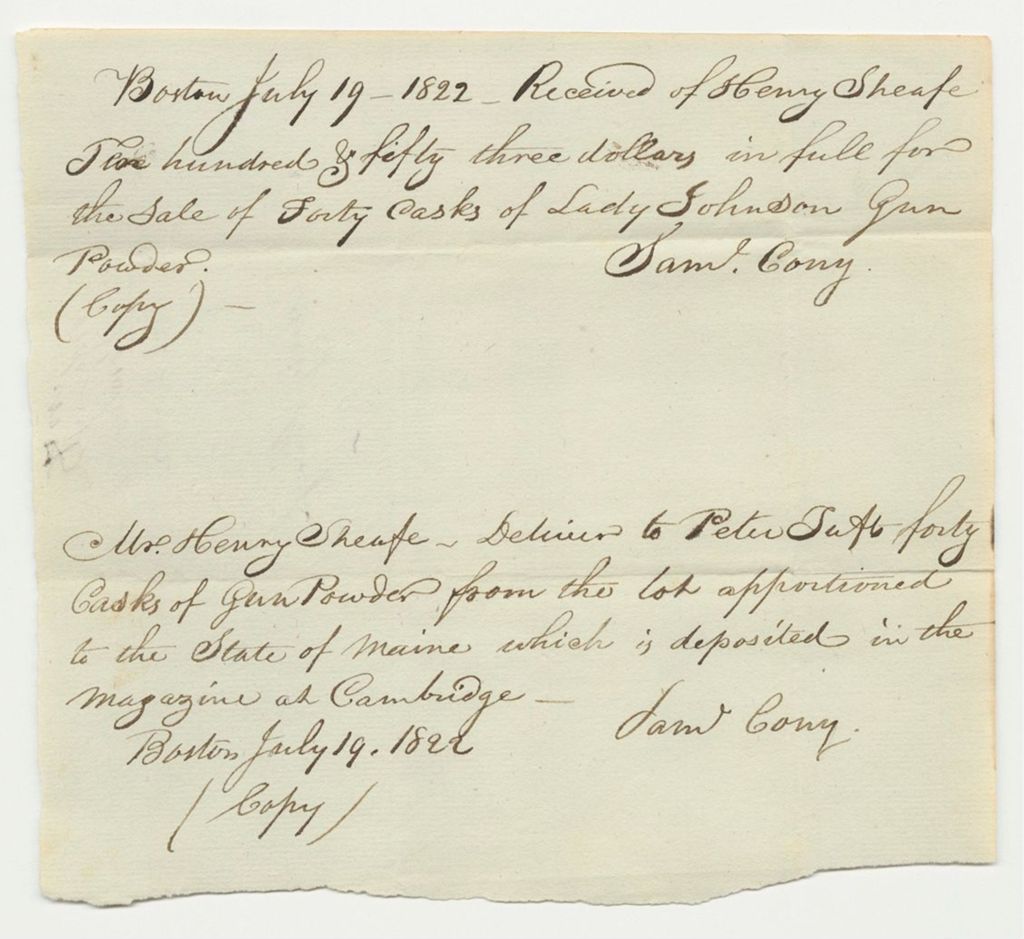 Boston July 19 - 1822 - Received of Henry Sheafe
hundred & fifty three dollars in full for
the Sale of Forty Casks of Lady Johnson Gun
Powder. Saml. Cony.
(Copy) -
Mr. Henry Sheafe - Deliver to Peter Tufts forty
Casks of Gun Powder from the lot apportioned
to the State of Maine which is deposited in the
magazine at Cambridge -
Boston July 19. 1822 Saml Cony.
(Copy)